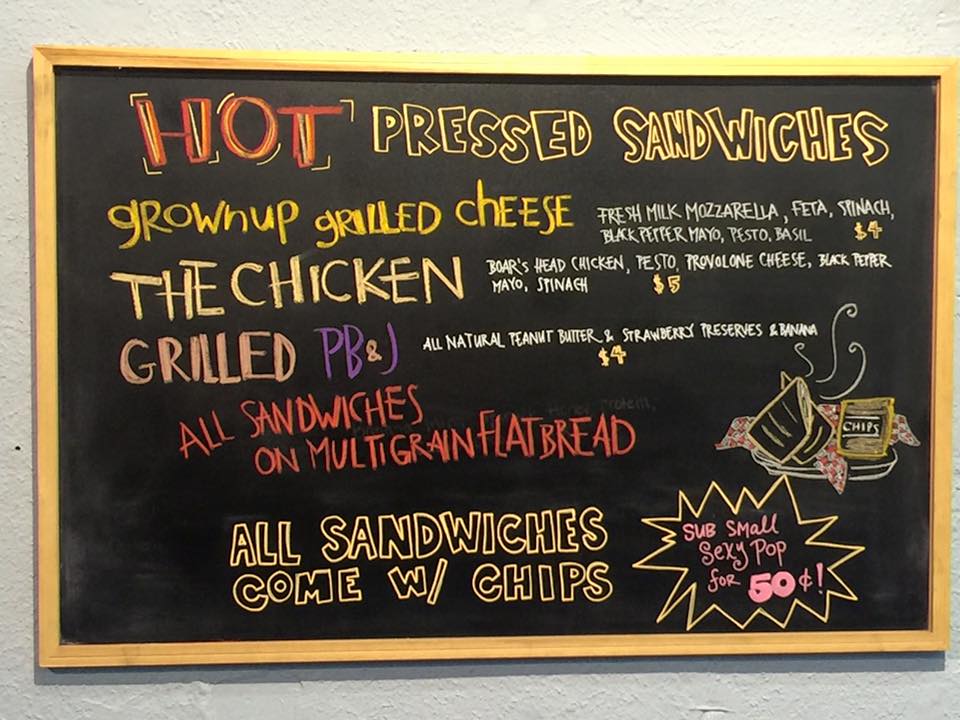 HOT PRESSED SANDWICHES
grownup grilled cheese
FRESH MILK MOZZARELLA, FETA, SPINACH,
BLACK PEPPER MAYO, PESTO, BASIL $4
THE CHICKEN
BOAR'S HEAD CHICKEN, PESTO, PROVOLONE CHEESE, BLACK PEPPER
MAYO, SPINACH $5
GRILLED PB&J
ALL NATURAL PEANUT BUTTER & STRAWBERRY PRESERVES & BANANA
$4
ALL SANDWICHES
ON MULTIGRAIN FLATBREAD
CHIPS
ALL SANDWICHES
COME W/ CHIPS
SUB SMALL
SEXY POP
for 50¢!